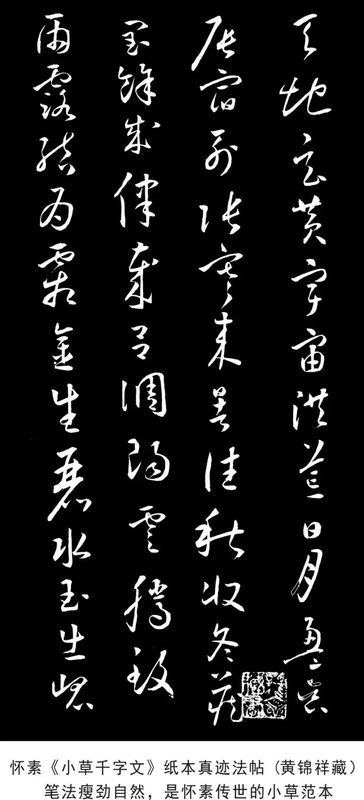 天地玄黃宇宙洪荒日月盈昃
辰宿列張寒來暑往秋收冬藏
閏餘成律歲呂調陽雲騰致
雨露結為霜金生麗水玉出崐
怀素《小草千字文》纸本真迹法帖（黄锦祥藏）
笔法瘦劲自然，是怀素传世的小草范本